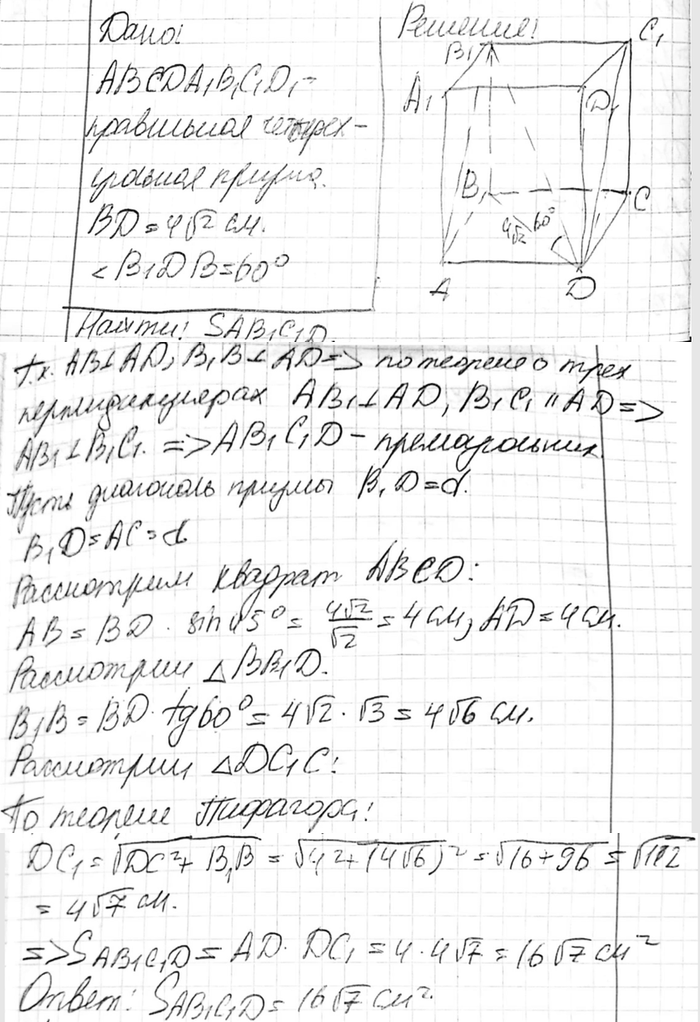 Дано:
ABCDA₁B₁C₁D₁ –
правильная четырех-
угольная призма.
BD = 4√2 см.
∠B₁DB = 60°
Найти: SAB₁C₁D.
Решение:
B₁
C₁
A₁
D₁
B
C
4√2 60°
A
D
т.к. AB⊥AD, B₁B⊥AD => по теореме о трех
перпендикулярах AB₁⊥AD, B₁C₁ || AD =>
AB₁⊥B₁C₁. => AB₁C₁D – прямоугольник
Пусть диагональ призмы B₁D = d.
B₁D = AC = d
Рассмотрим квадрат ABCD:
AB = BD · sin 45° = 4√2/√2 = 4 см, AD = 4 см.
Рассмотрим △BB₁D.
B₁B = BD · tg60° = 4√2 · √3 = 4√6 см.
Рассмотрим △DC₁C:
По теореме Пифагора:
DC₁ = √DC² + B₁B = √4² + (4√6)² = √16 + 96 = √112
= 4√7 см.
=> SAB₁C₁D = AD · DC₁ = 4 · 4√7 = 16√7 см²
Ответ: SAB₁C₁D = 16√7 см².